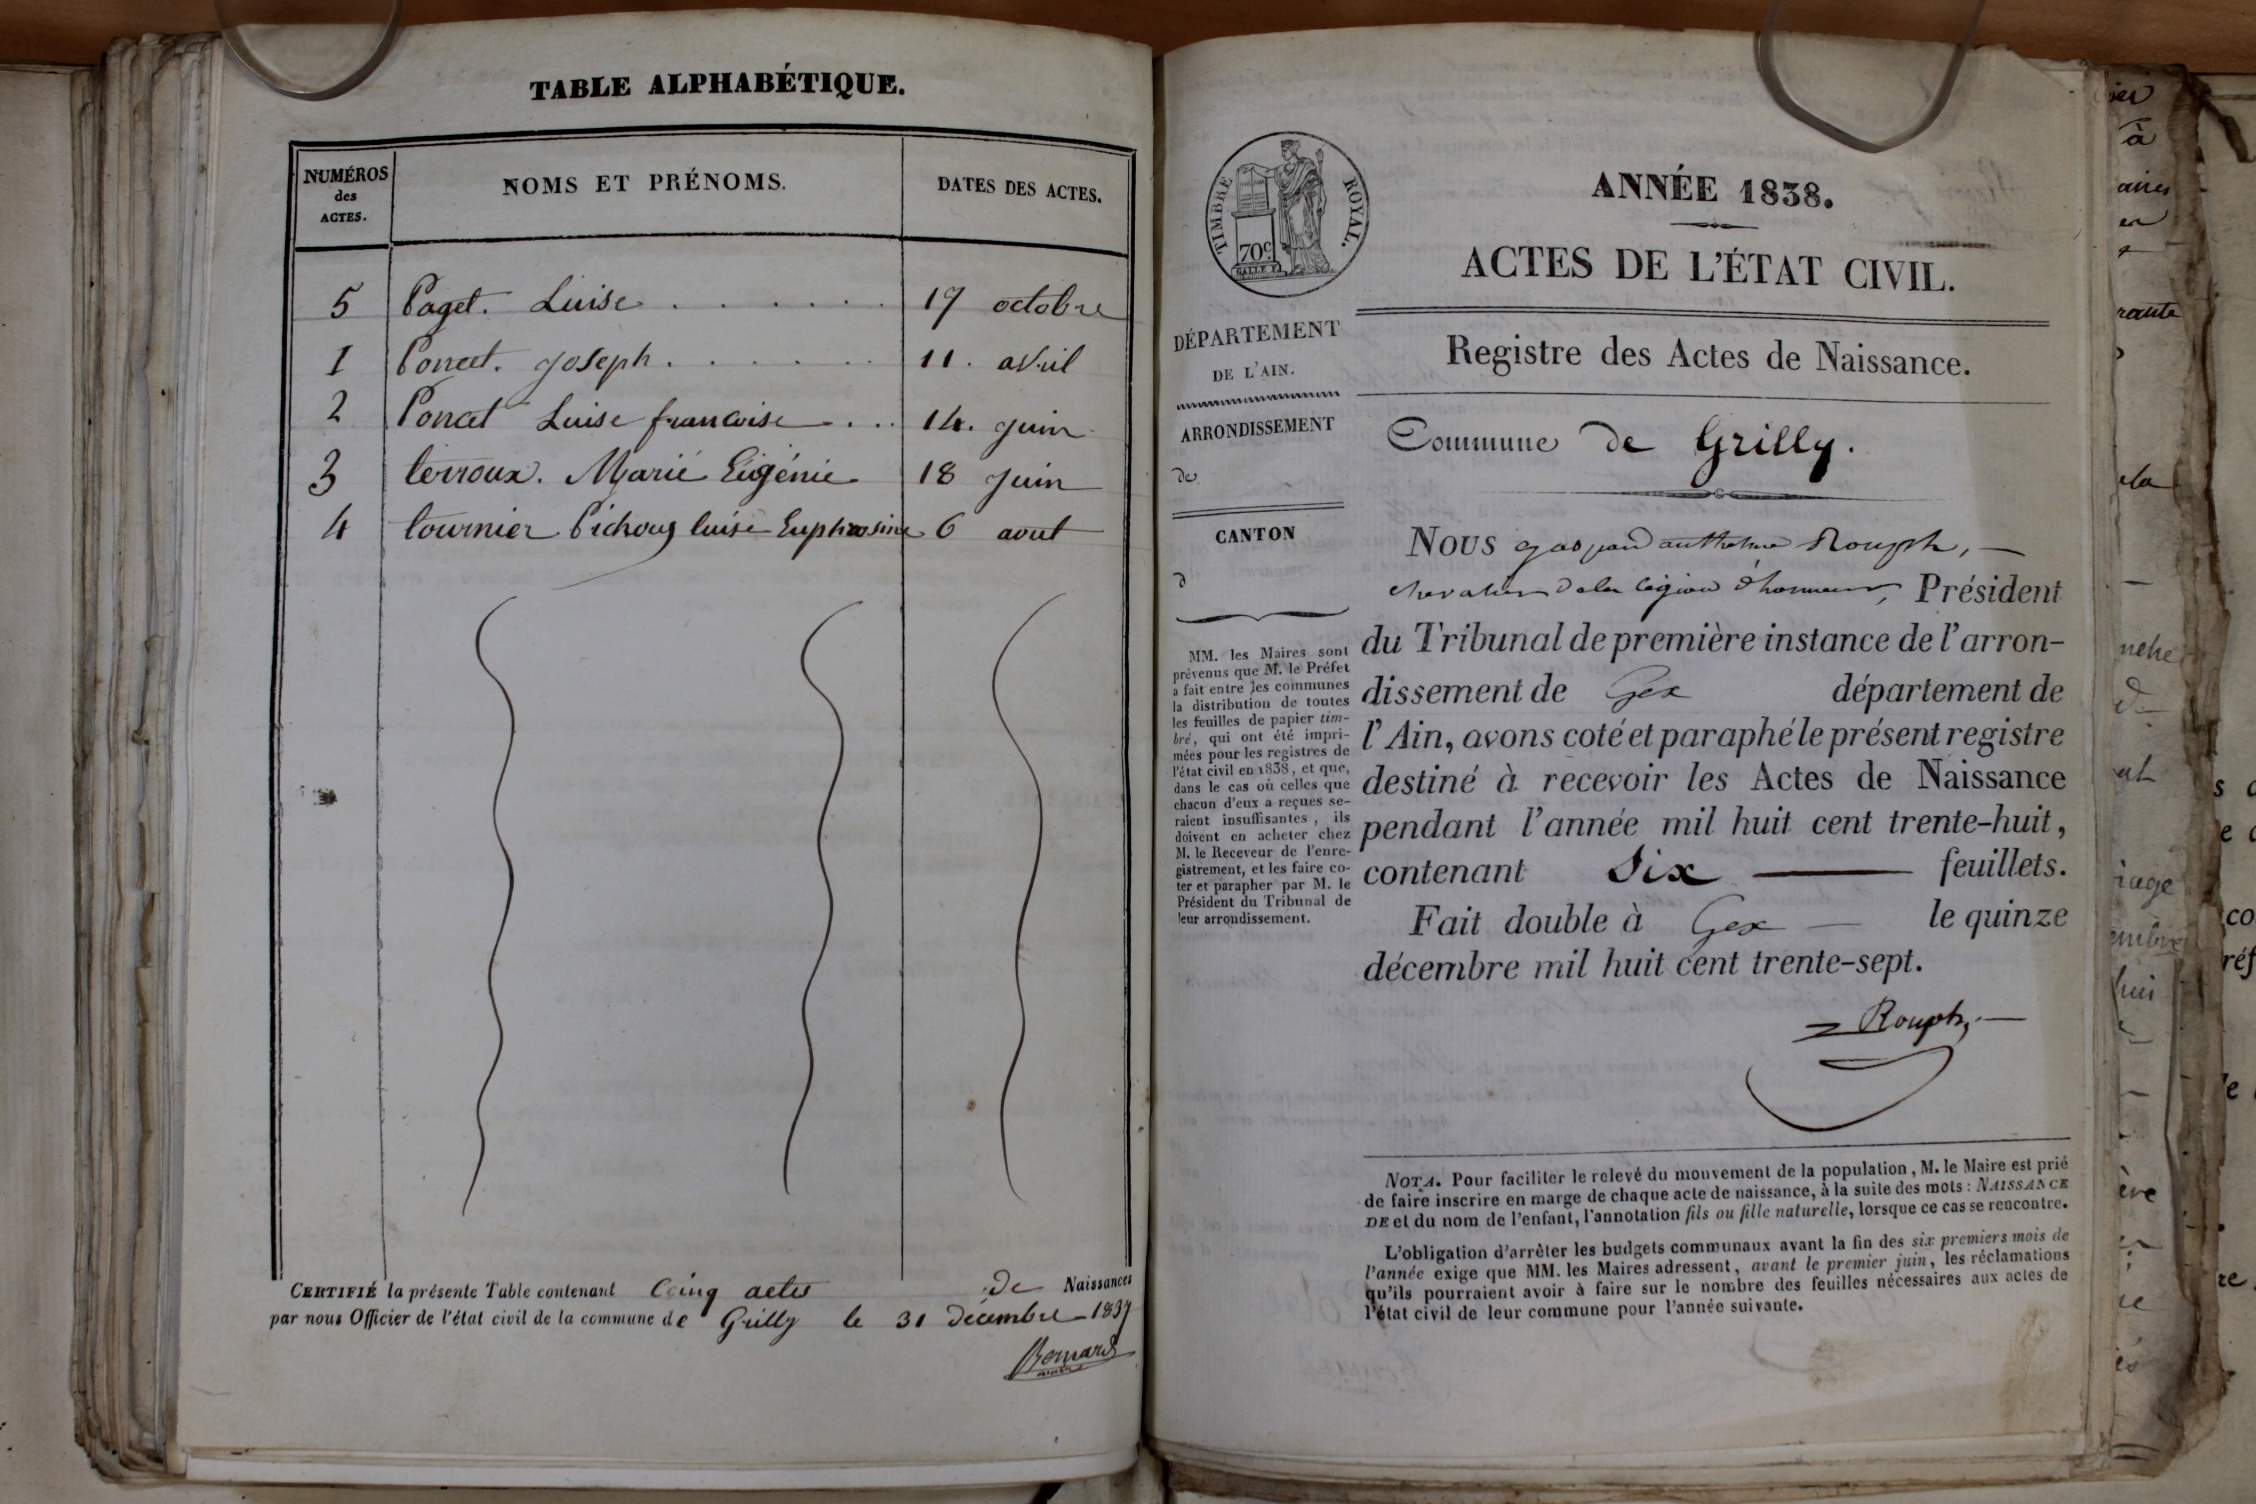 TABLE ALPHABÉTIQUE.
NUMÉROS des ACTES. NOMS ET PRÉNOMS. DATES DES ACTES.
5 Paget. Luise 19 octobre
1 Poncet. Joseph 11. avril
2 Poncet Luise francoise 14. juin
3 terroux. Marie Eugénie 18 juin
4 tournier Pichoug luise Euphrosine 6 aout
CERTIFIÉ la présente Table contenant Cinq actes de Naissances
par nous Officier de l'état civil de la commune de Grilly le 31 décembre 1837
Bernard
maire
TIMBRE ROYAL.
70c.
ANNÉE 1838.
ACTES DE L'ÉTAT CIVIL.
Registre des Actes de Naissance.
Commune de Grilly.
DÉPARTEMENT
DE L'AIN.
ARRONDISSEMENT
de
CANTON
d
MM. les Maires sont
prévenus que M. le Préfet
a fait entre les communes
la distribution de toutes
les feuilles de papier tim-
bré, qui ont été impri-
mées pour les registres de
l'état civil en 1838, et que,
dans le cas où celles que
chacun d'eux a reçues se-
raient insuffisantes, ils
doivent en acheter chez
M. le Receveur de l'enre-
gistrement, et les faire co-
ter et parapher par M. le
Président du Tribunal de
leur arrondissement.
NOUS gaspard anthelme Rouph,
chevalier de la légion d'honneur, Président
du Tribunal de première instance de l'arron-
dissement de Gex département de
l'Ain, avons coté et paraphé le présent registre
destiné à recevoir les Actes de Naissance
pendant l'année mil huit cent trente-huit,
contenant Six feuillets.
Fait double à Gex le quinze
décembre mil huit cent trente-sept.
Rouph
NOTA. Pour faciliter le relevé du mouvement de la population, M. le Maire est prié
de faire inscrire en marge de chaque acte de naissance, à la suite des mots : NAISSANCE
DE et du nom de l'enfant, l'annotation fils ou fille naturelle, lorsque ce cas se rencontre.
L'obligation d'arrêter les budgets communaux avant la fin des six premiers mois de
l'année exige que MM. les Maires adressent, avant le premier juin, les réclamations
qu'ils pourraient avoir à faire sur le nombre des feuilles nécessaires aux actes de
l'état civil de leur commune pour l'année suivante.